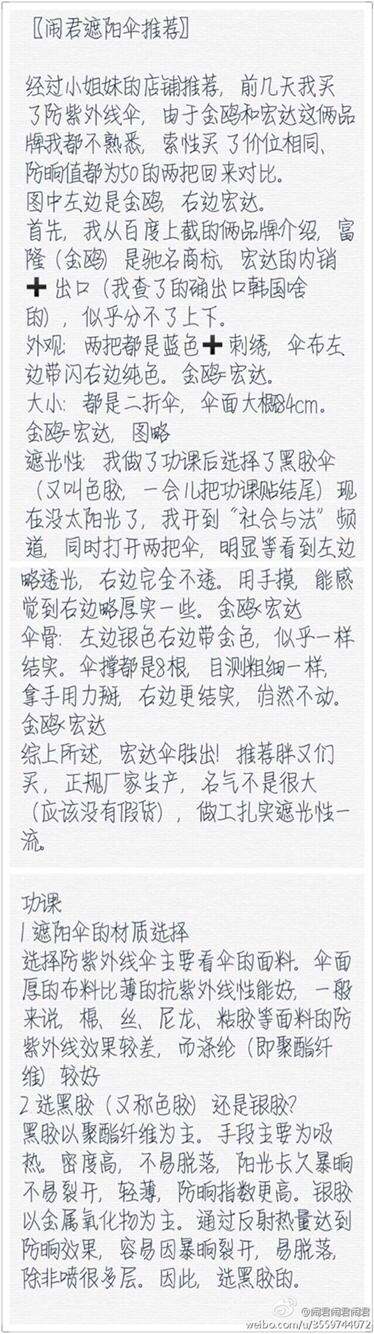 〖闹君遮阳伞推荐〗
经过小姐妹的店铺推荐，前几天我买
了防紫外线伞，由于金鸥和宏达这俩品
牌我都不熟悉，索性买了价位相同、
防晌值都为50的两把回来对比。
图中左边是金鸥，右边宏达。
首先，我从百度上截的俩品牌介绍，富
隆（金鸥）是驰名商标，宏达的内销
➕出口（我查了的确出口韩国啥
的），似乎分不了上下。
外观：两把都是蓝色➕刺绣，伞布左
边带闪右边纯色。金鸥=宏达。
大小：都是二折伞，伞面大概84cm。
金鸥=宏达，图略
遮光性：我做了功课后选择了黑胶伞
（又叫色胶，一会儿把功课贴结尾）现
在没太阳光了，我开到“社会与法”频
道，同时打开两把伞，明显等看到左边
略透光，右边完全不透。用手摸，能感
觉到右边略厚实一些。金鸥<宏达
伞骨：左边银色右边带金色，似乎一样
结实。伞撑都是8根，目测粗细一样，
拿手用力掰，右边更结实，岿然不动。
金鸥<宏达
综上所述，宏达伞胜出！推荐胖又们
买，正规厂家生产，名气不是很大
（应该没有假货），做工扎实遮光性一
流。
功课
1 遮阳伞的材质选择
选择防紫外线伞主要看伞的面料。伞面
厚的布料比薄的抗紫外线性能好，一般
来说，棉、丝、尼龙、粘胶等面料的防
紫外线效果较差，而涤纶（即聚酯纤
维）较好
2 选黑胶（又称色胶）还是银胶？
黑胶以聚酯纤维为主。手段主要为吸
热。密度高，不易脱落，阳光长久暴晌
不易裂开，轻薄，防晌指数更高。银胶
以金属氧化物为主。通过反射热量达到
防晌效果，容易因暴晌裂开，易脱落，
除非喷很多层。因此，选黑胶的。
@闹君闹君闹君
weibo.com/u/3559744072